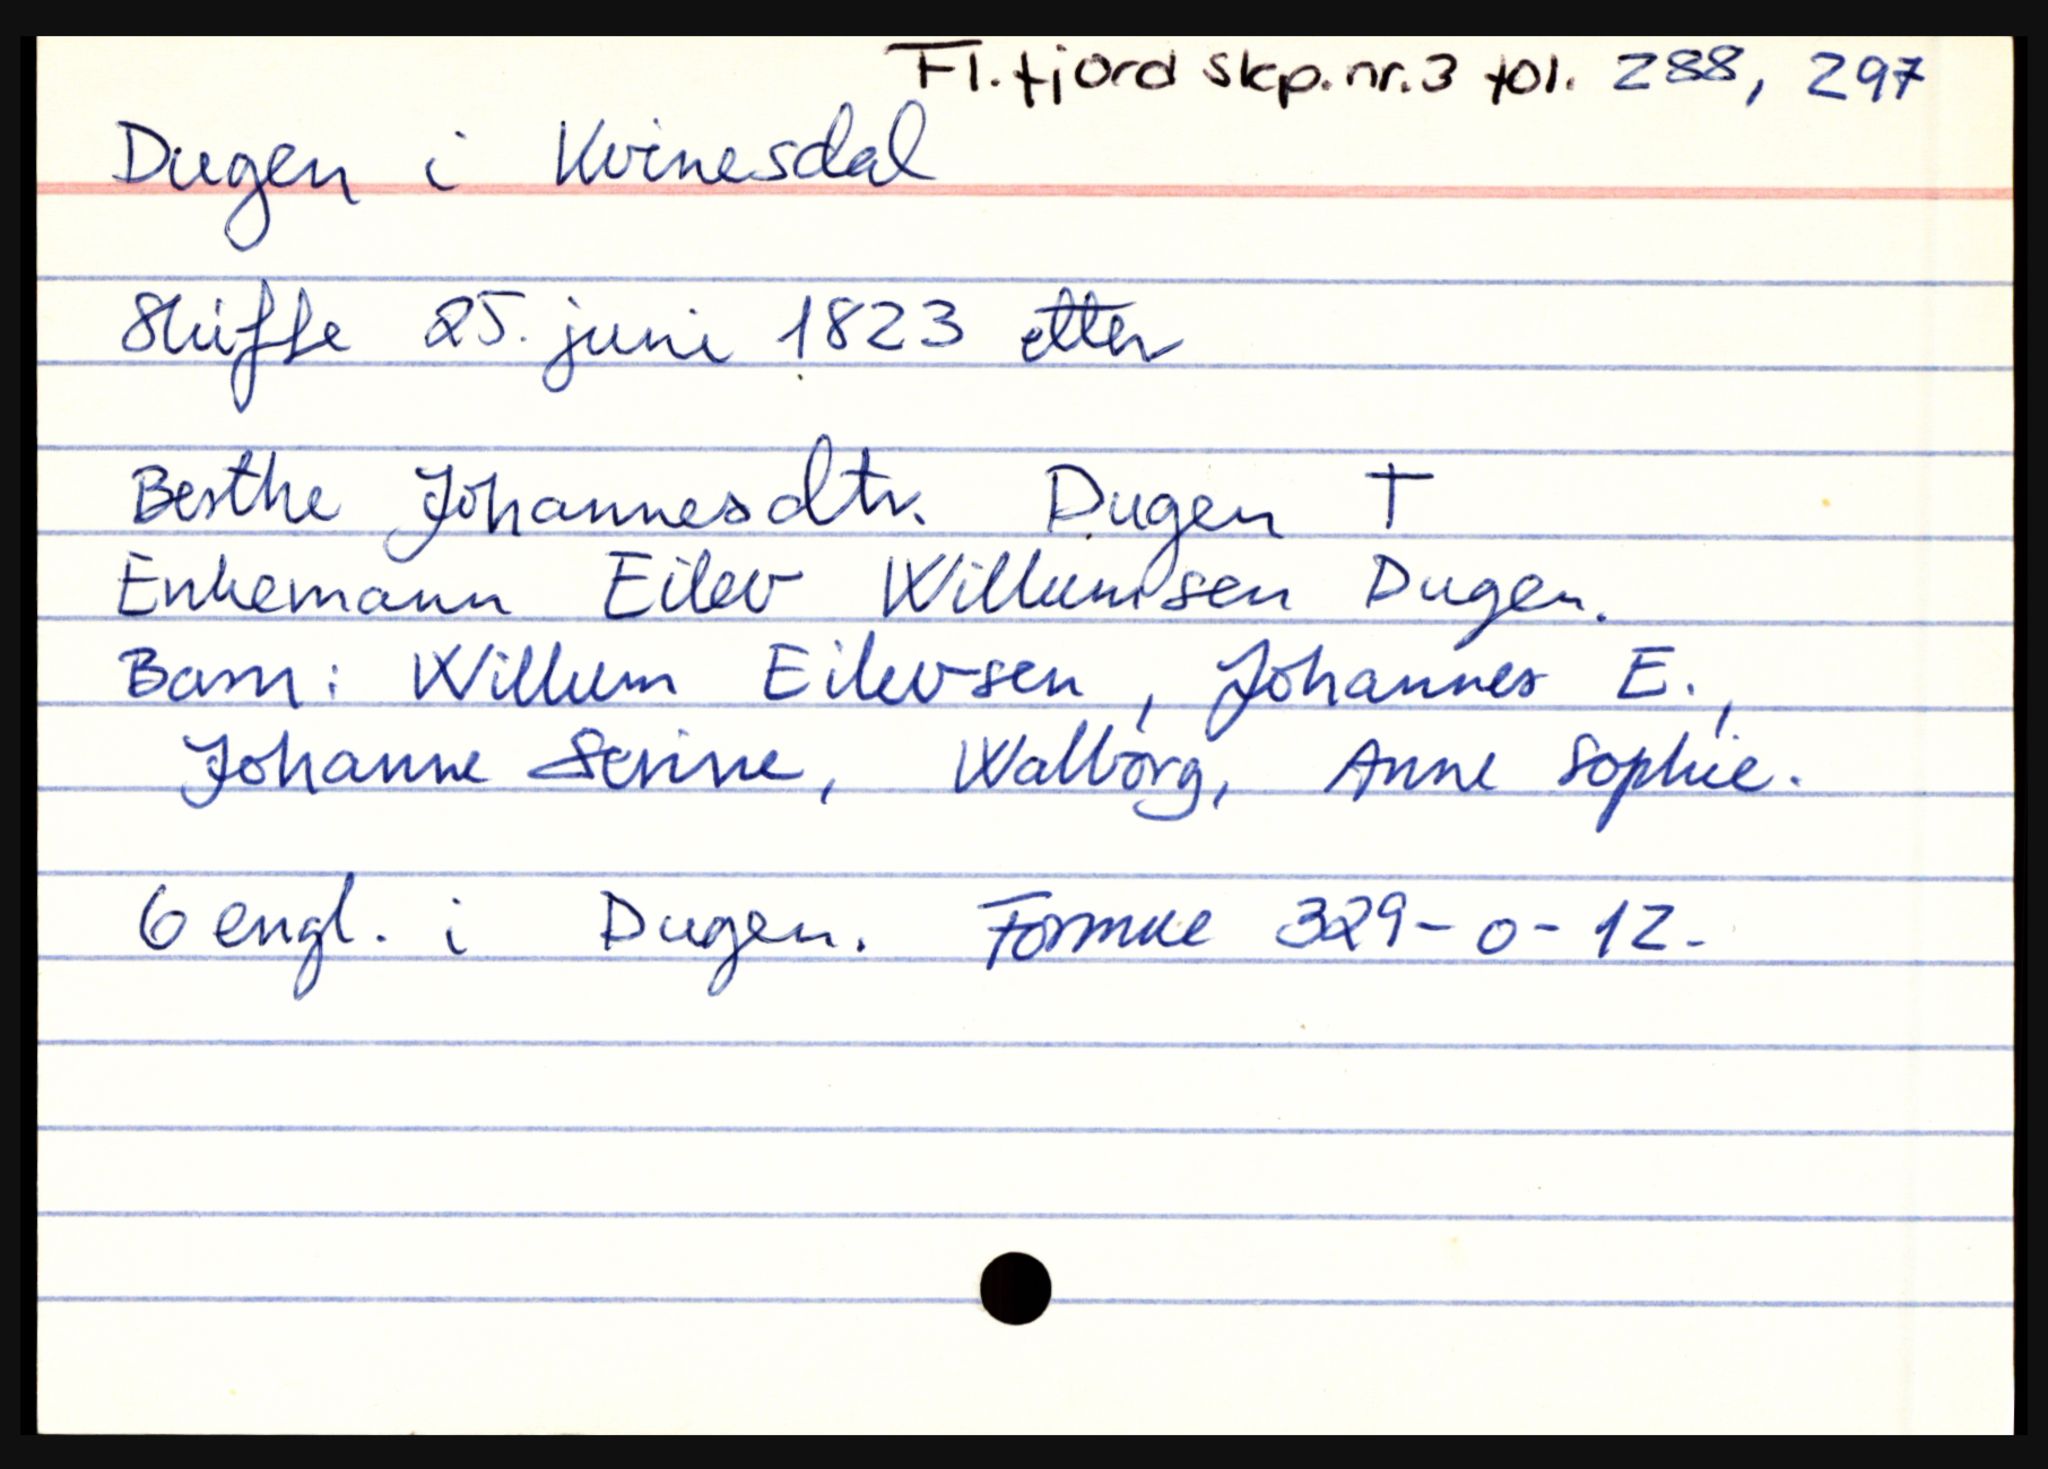 Fl.fjord skp.nr.3 fol. 288, 297
Dugen i Kvinesdal
Skifte 25. juni 1823 etter
Berthe Johannesdtr. Dugen †
Enkemann Eilev Willumsen Dugen.
Barn: Willum Eilevsen, Johannes E.,
Johanne Serine, Walborg, Anne Sophie.
6 engl. i Dugen. Formue 329-0-12.